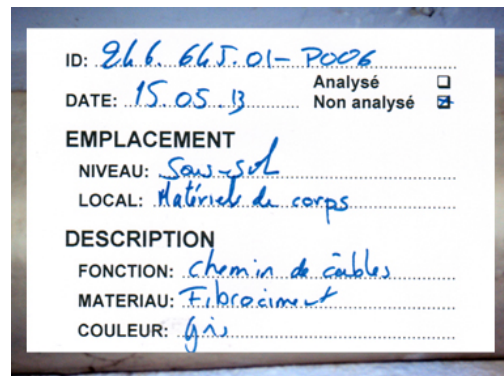 ID: 246.645.01-P006
Analysé ☐
DATE: 15.05.13 Non analysé ☒
EMPLACEMENT
NIVEAU: Sous-sol
LOCAL: Matériel de corps
DESCRIPTION
FONCTION: Chemin de câbles
MATERIAU: Fibrociment
COULEUR: Gris